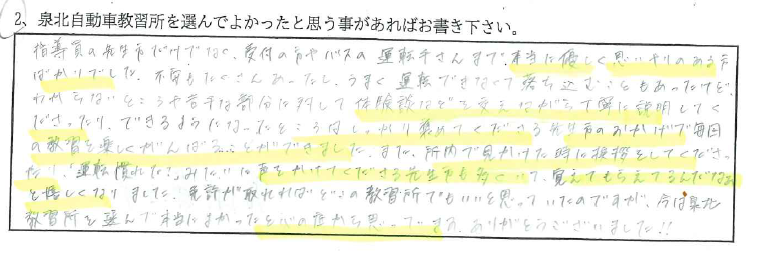 2、泉北自動車教習所を選んでよかったと思う事があればお書き下さい。
指導員の先生方だけでなく、受付の方やバスの運転手さんまで、本当に優しく思いやりのある方
ばかりでした。不安もたくさんあったし、うまく運転できなくて落ち込むこともあったけど、
わからないところや苦手な部分に対して体験談などを交えながら丁寧に説明してく
ださったり、できるようになったところはしっかり褒めてくださる先生方のおかげで毎回
の教習を楽しくがんばることができました。また、所内で見かけた時に挨拶をしてくださっ
たり、「運転慣れた？」みたいに声をかけてくださる先生方も多くいて、覚えてもらえてるんだなぁ
と嬉しくなりました。免許が取れればどこの教習所でもいいと思っていたのですが、今は泉北
教習所を選んで本当によかったと心の底から思っています。ありがとうございました!!